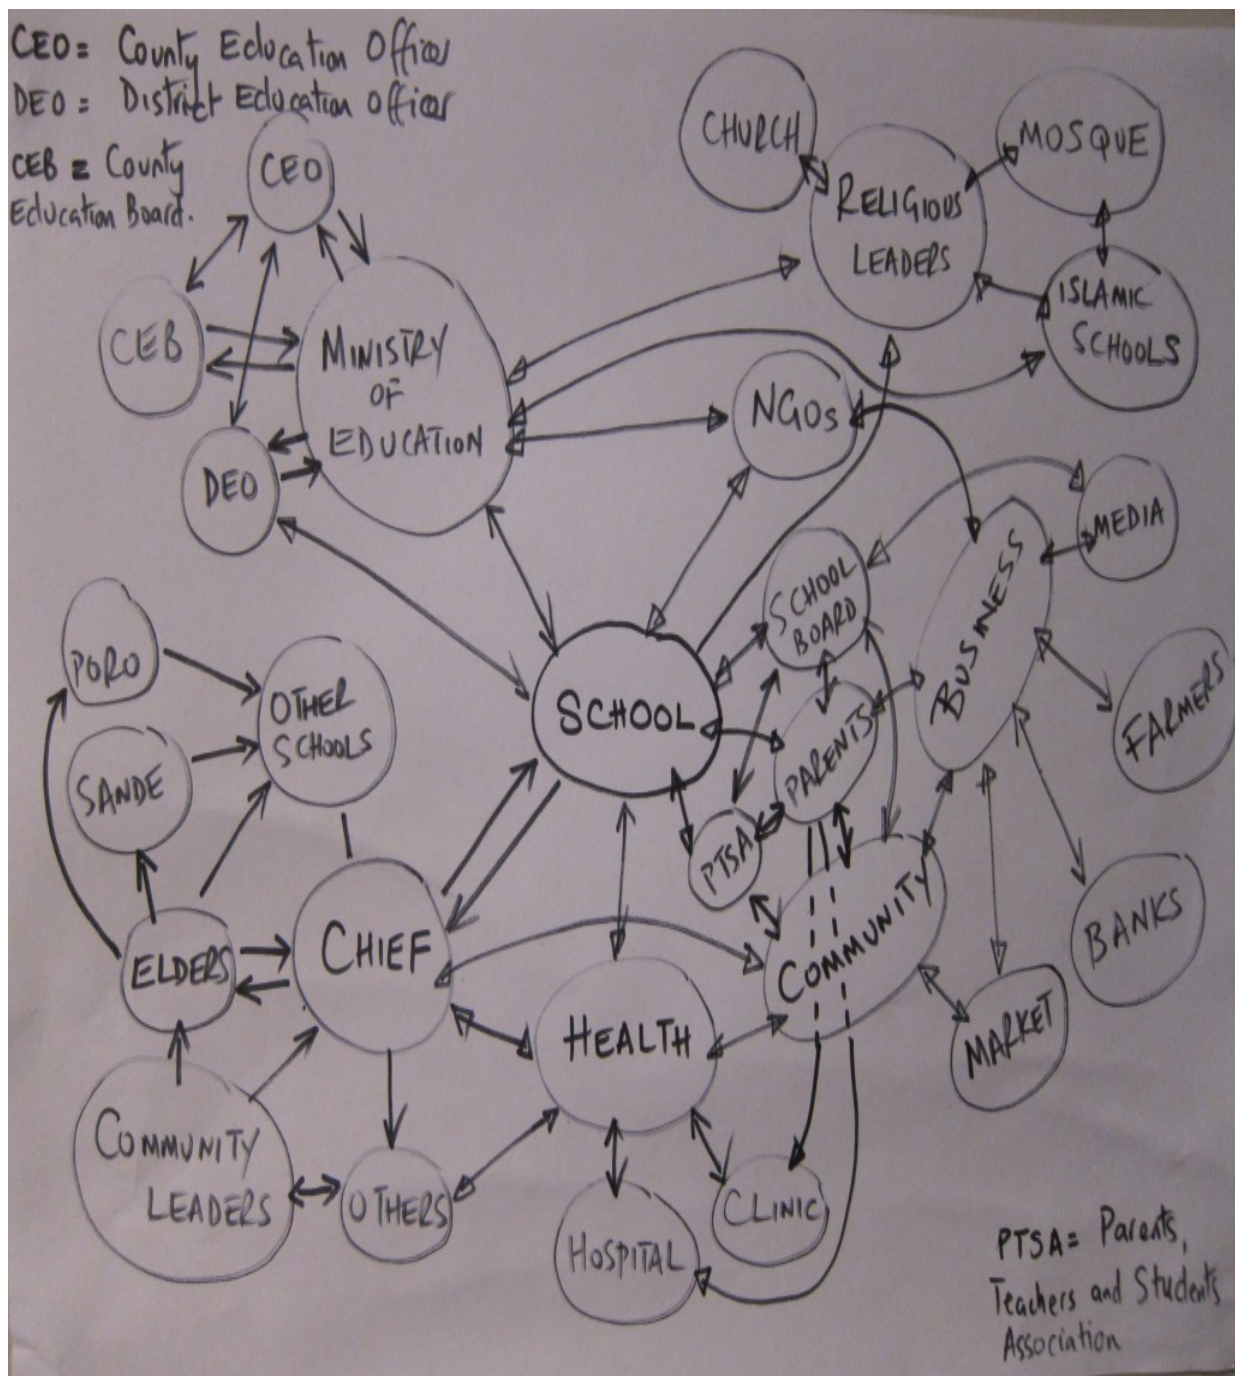 CEO = County Education Officer
DEO = District Education Officer
CEB = County
Education Board.
CEO
CEB
MINISTRY
OF
EDUCATION
DEO
CHURCH
RELIGIOUS
LEADERS
MOSQUE
ISLAMIC
SCHOOLS
NGOs
MEDIA
SCHOOL
BOARD
BUSINESS
FARMERS
PORO
OTHER
SCHOOLS
SANDE
SCHOOL
PARENTS
PTSA
ELDERS
CHIEF
COMMUNITY
BANKS
HEALTH
MARKET
COMMUNITY
LEADERS
OTHERS
HOSPITAL
CLINIC
PTSA = Parents,
Teachers and Students
Association